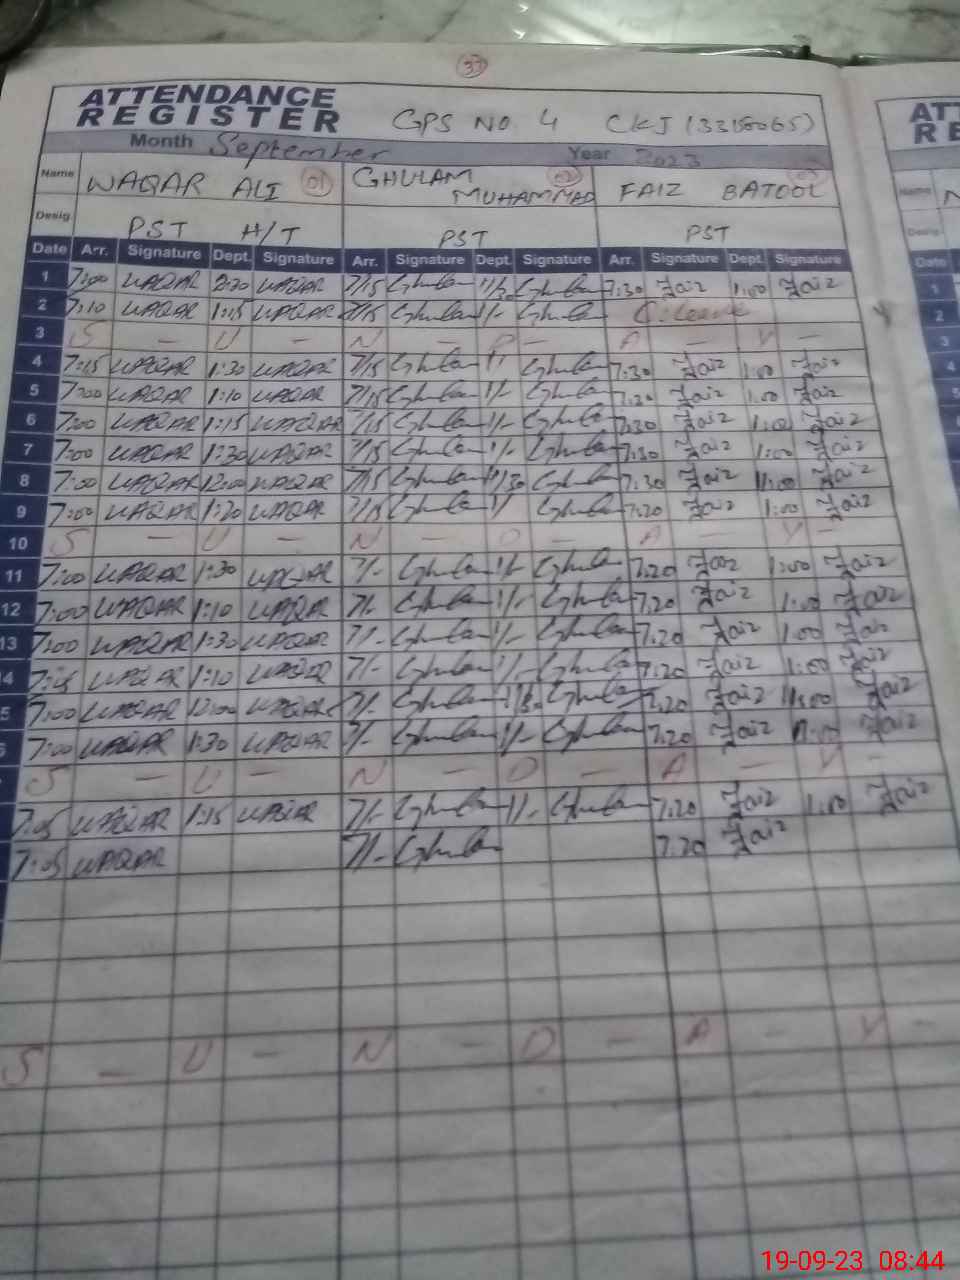 37
ATTENDANCE REGISTER GPS NO. 4 CKJ (33180065)
Month September Year 2023
Name WAQAR ALI 01 GHULAM MUHAMMAD 02 FAIZ BATOOL 03
Desig. PST H/T PST PST
Date Arr. Signature Dept. Signature Arr. Signature Dept. Signature Arr. Signature Dept. Signature
1 7:00 WAQAR WAQAR 7/15 Ghulam 11/30 Ghulam 7.30 Faiz Faiz
2 7:10 WAQAR 1:15 WAQAR 7/15 Ghulam 1/- Ghulam C.leave
3 S - U - N - D - A - Y -
4 7:15 WAQAR 1:30 WAQAR 7/15 Ghulam Ghulam 7.30 Faiz 1.00 Faiz
5 7:00 WAQAR 1:10 WAQAR 7/15 Ghulam 1/- Ghulam Faiz 1.00 Faiz
6 7:00 WAQAR 1:15 WAQAR 7/15 Ghulam 1/- Ghulam 7.30 Faiz 1.00 Faiz
7 7:00 WAQAR 1:30 WAQAR 7/15 Ghulam 1/- Ghulam 7.30 Faiz 1.00 Faiz
8 7:00 WAQAR 12:00 WAQAR 7/15 Ghulam 11/30 Ghulam 7.30 Faiz Faiz
9 7:00 WAQAR 1:20 WAQAR 7/15 Ghulam Ghulam 7.20 Faiz 1.00 Faiz
10 S - U - N - D - A - Y -
11 7:00 WAQAR 1:30 WAQAR 7/- Ghulam 1/- Ghulam 7.20 Faiz 1.00 Faiz
12 7:00 WAQAR 1:10 WAQAR 7/- Ghulam 1/- Ghulam 7.20 Faiz 1.00 Faiz
13 7:00 WAQAR 1:30 WAQAR 7/- Ghulam 1/- Ghulam 7.20 Faiz 1.00 Faiz
4 WAQAR 1:10 WAQAR 7/- Ghulam 1/- Ghulam 7.20 Faiz 1.00 Faiz
5 7:00 WAQAR 12:00 WAQAR 7/- Ghulam Ghulam 7.20 Faiz Faiz
7:00 WAQAR 1:30 WAQAR 7/- Ghulam 1/- Ghulam 7.20 Faiz Faiz
S - U - N - D - A - Y -
7:05 WAQAR 1:15 WAQAR 7/- Ghulam 1/- Ghulam 7.20 Faiz 1.00 Faiz
7:05 WAQAR 7/- Ghulam 7.20 Faiz
S - U - N - D - A - Y -
ATT
RE
Name
Desig.
Date
1
2
3
4
5
19-09-23 08:44